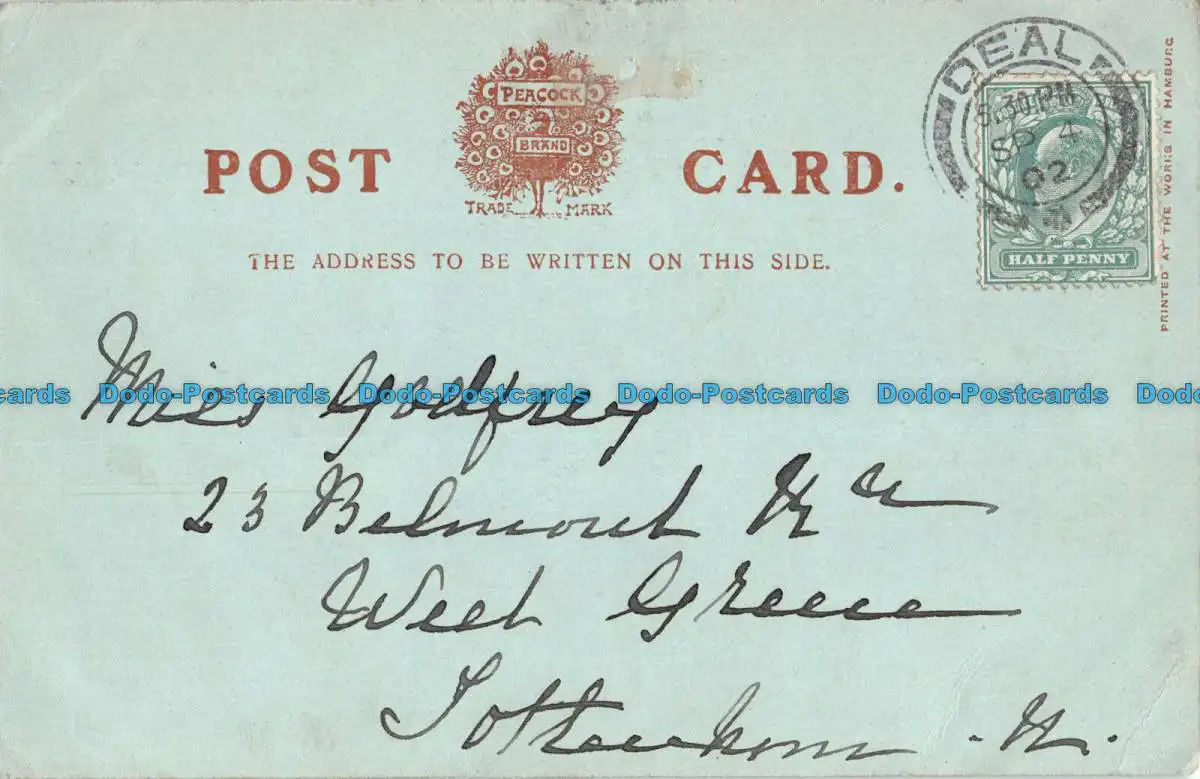 PEACOCK
BRAND
TRADE MARK
POST CARD.
THE ADDRESS TO BE WRITTEN ON THIS SIDE.
DEAL
8.30 PM
SP 4
02
HALF PENNY
PRINTED AT THE WORKS IN HAMBURG
Miss Godfrey
23 Belmont
West Green
Tottenham . N.
Dodo-Postcards Dodo-Postcards Dodo-Postcards Dodo-Postcards Dodo-Postcards